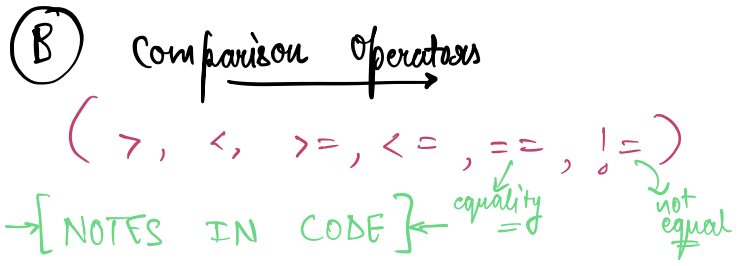 B Comparison Operators
( >, <, >=, <=, ==, != )
equality
not equal
[NOTES IN CODE]